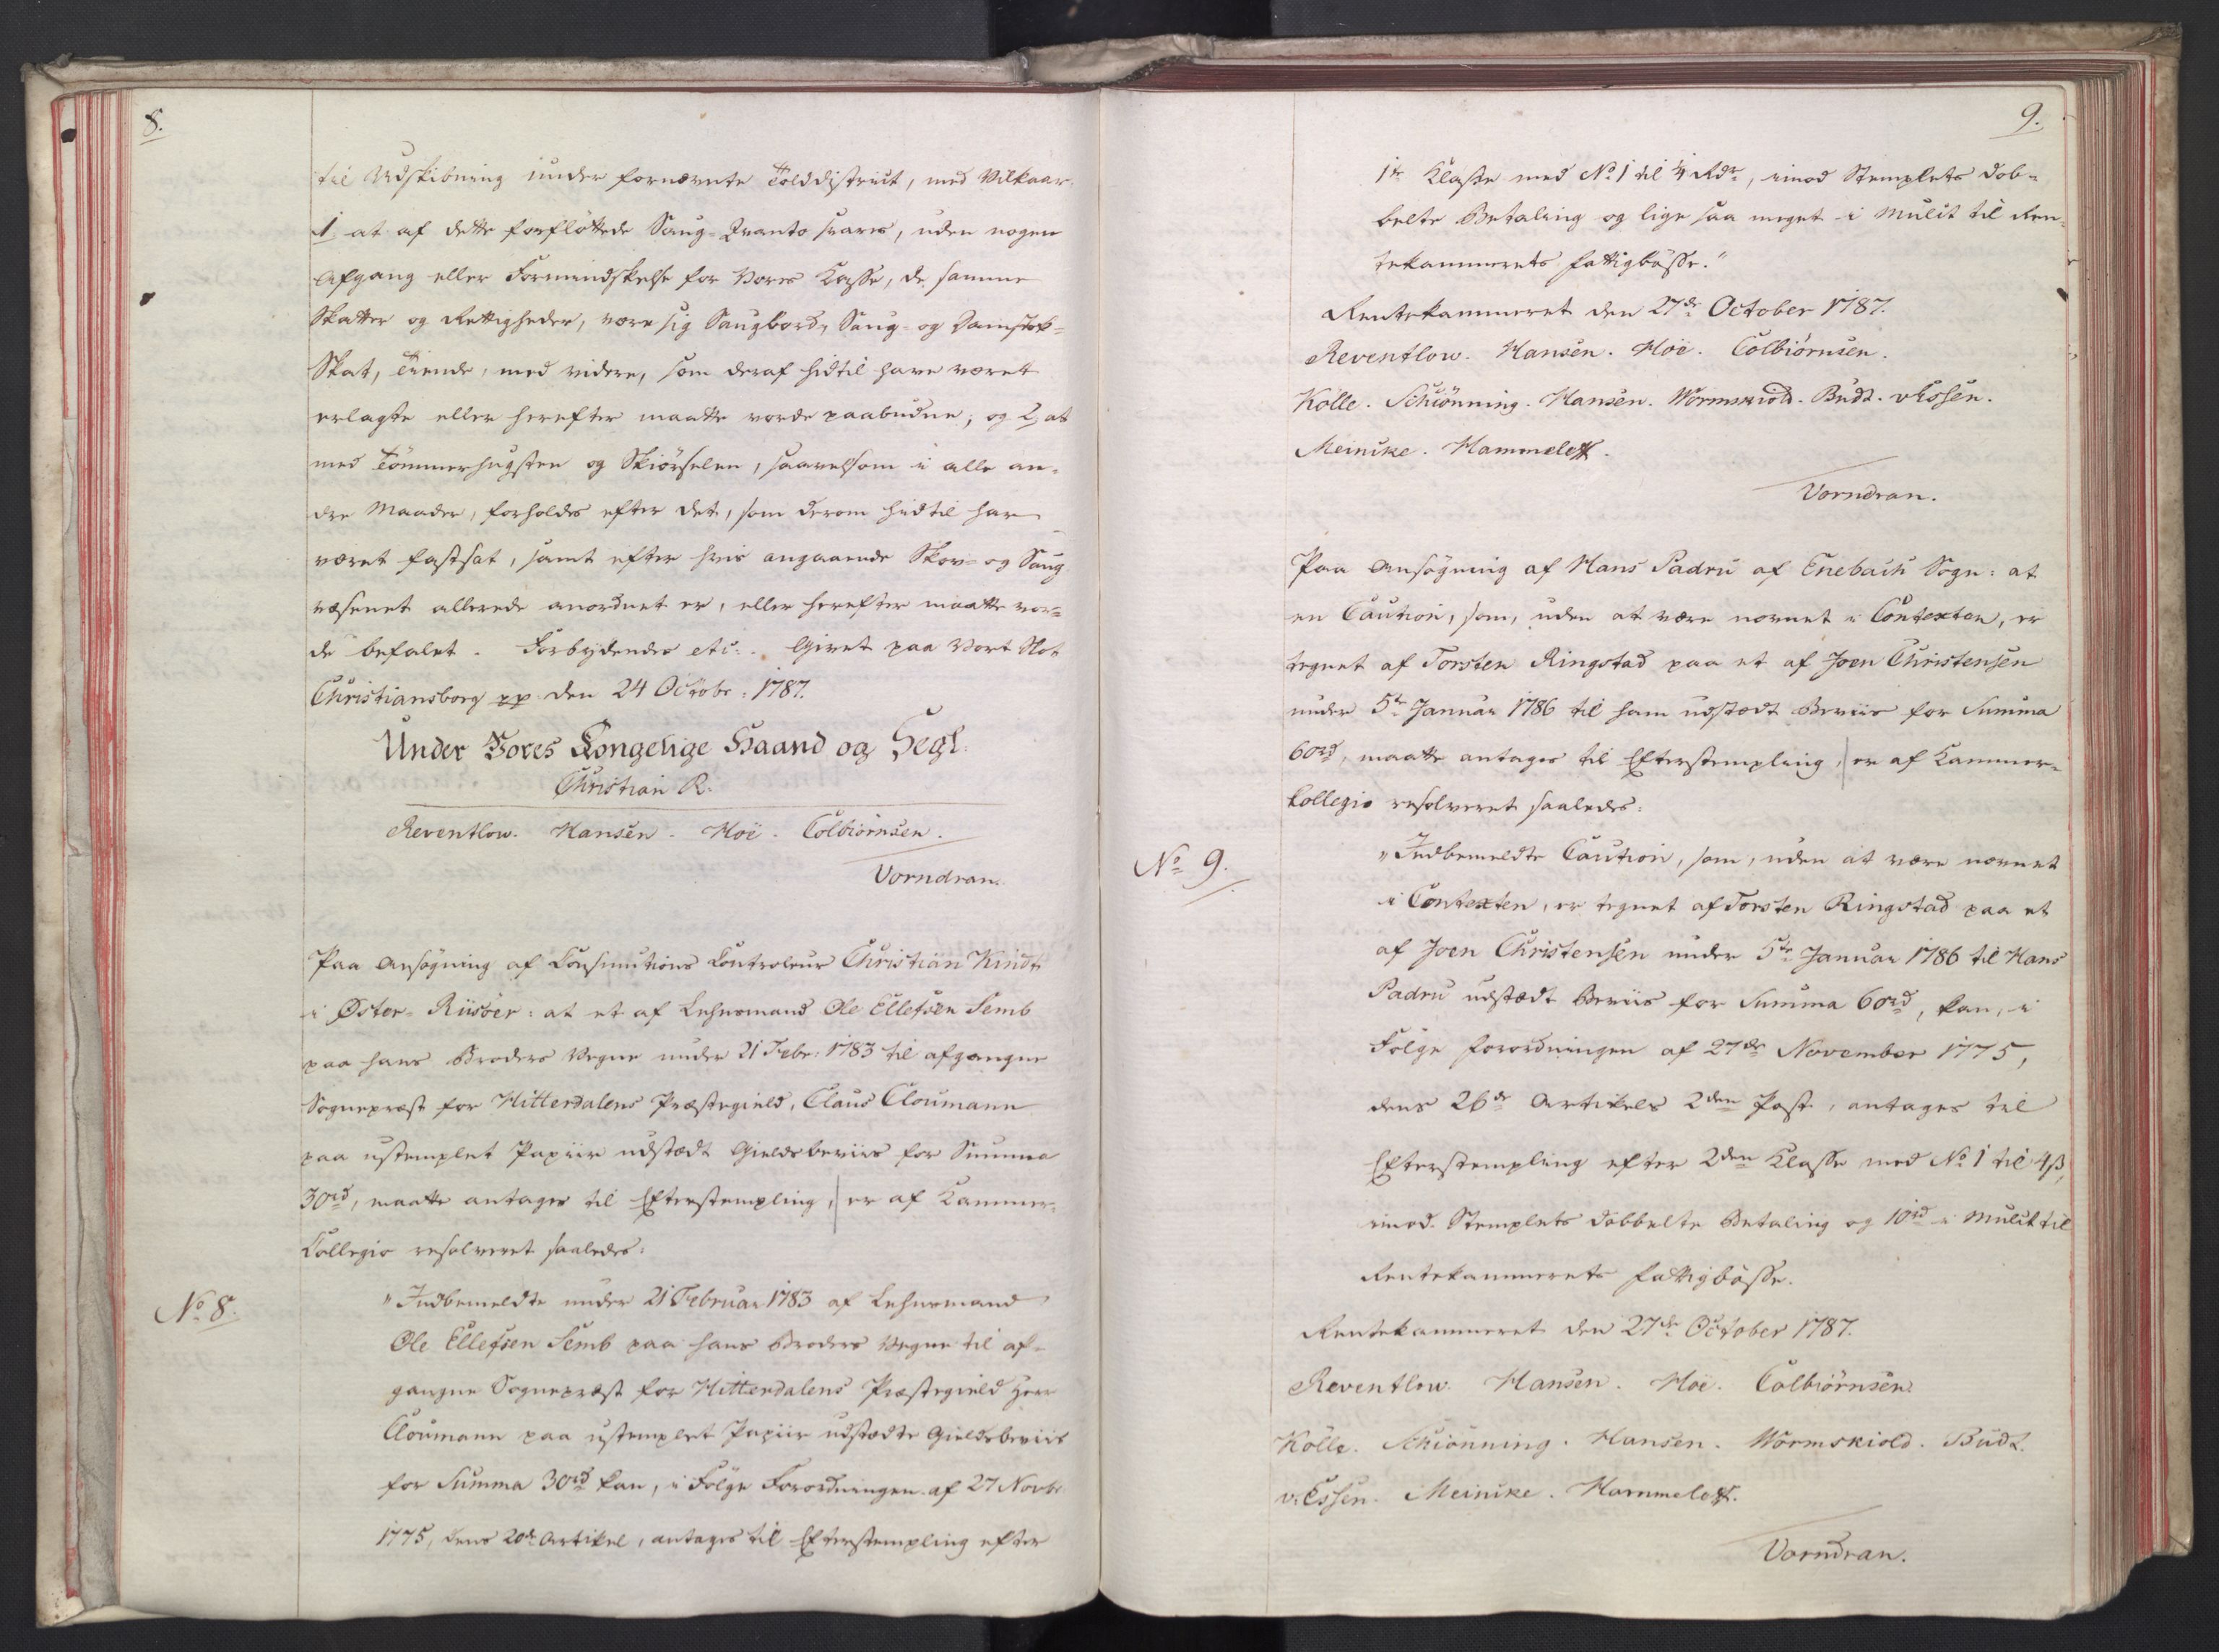 8.
til Udskibning under fornævnte Tolddistrict, med Vilkaar,
1, at af dette forflöttede Saug-Qvanto svares, uden nogen
Afgang eller Formindskelse for Vores Casse, de samme
Skatter og Rettigheder, være sig Saugbord, Saug- og Damstok-
Skat, Tiende, med videre, som deraf hidtil have været
erlagte eller herefter maatte vorde paabudne; og 2, at
med Tömmerhugsten og Skiörselen, saavelsom i alle an-
dre Maader, forholdes efter det, som derom hidtil har
været fastsat, samt efter hvis angaaende Skov- og Saug
væsenet allerede anordnet er, eller herefter maatte vor-
de befalet. Forbydendes etc. Givet paa Vort Slot
Christiansborg pp den 24 Octobr: 1787.
Under Vores Kongelige Haand og Segl.
Christian R.
Reventlow. Hansen. Hoë. Colbiörnsen.
Vorndran.
Paa Ansögning af Consumtions Controleur Christian Kindt
i Øster-Riisöer: at et af Lehnsmand Ole Ellefsen Semb
paa hans Broders Vegne under 21 Febr: 1783 til afgangne
Sognepræst for Hitterdalens Præstegield, Claus Cloumann
paa ustemplet Papiir udstædt Gieldsbeviis for Summa
30rd, maatte antages til Efterstempling, er af Kammer-
Collegio resolveret saaledes:
No 8.
"Indbemeldte under 21 Februar 1783 af Lehnsmand
Ole Ellefsen Semb paa hans Broders Vegne til af-
gangne Sognepræst for Hitterdalens Præstegield Herr
Cloumann paa ustemplet Papiir udstædte Gieldsbeviis
for Summa 30rd kan, i Fölge Forordningen af 27 Novbr:
1775, dens 20de Artikel, antages til Efterstempling efter
9.
1te Classe med No 1 til 4 Rdr, imod Stemplets dob-
belte Betaling og lige saa meget i Mulct til Ren-
tekammerets Fattigbösse."
Rentekammeret den 27de October 1787.
Reventlow. Hansen. Hoë. Colbiörnsen.
Kölle. Schiönning. Hansen. Wormskiold. Budt. vEssen.
Meinike. Hammeleff.
Vorndran.
Paa Ansögning af Hans Padru af Enebach Sogn: at
en Caution, som, uden at være nævnet i Contexten, er
tegnet af Torsten Ringstad paa et af Joen Christensen
under 5te Januar 1786 til ham udstædt Beviis for Summa
60rd, maatte antages til Efterstempling, er af Kammer-
Collegio resolveret saaledes:
No 9.
"Indbemeldte Caution, som, uden at være nævnet
i Contexten, er tegnet af Torsten Ringstad paa et
af Joen Christensen under 5te Januar 1786 til Hans
Padru udstædt Beviis for Summa 60rd, kan, i
Fölge Forordningen af 27de November 1775,
dens 26de Artikels 2den Post, antages til
Efterstempling efter 2den Classe med No 1 til 4ß,
imod Stemplets dobbelte Betaling og 10rd i Mulct til
Rentekammerets Fattigbösse.
Rentekammeret den 27de October 1787.
Reventlow. Hansen. Hoë. Colbiörnsen.
Kölle. Schiönning. Hansen. Wormskiold. Budt.
v. Essen. Meinike. Hammeleff.
Vorndran.